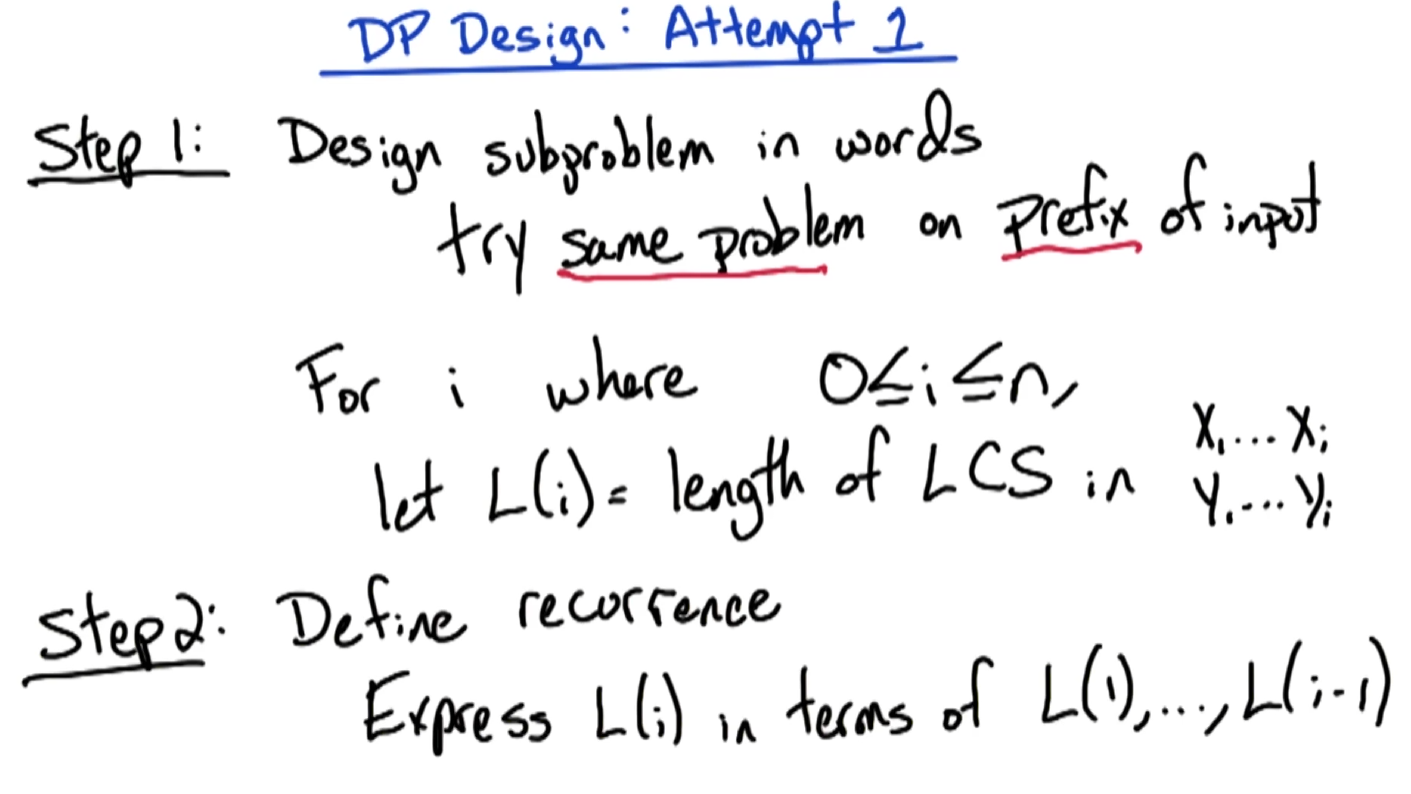 DP Design: Attempt 1
Step 1: Design subproblem in words
try same problem on prefix of input
For i where 0≤i≤n,
let L(i)= length of LCS in X₁...Xᵢ
Y₁...Yᵢ
Step 2: Define recurrence
Express L(i) in terms of L(1),...,L(i-1)